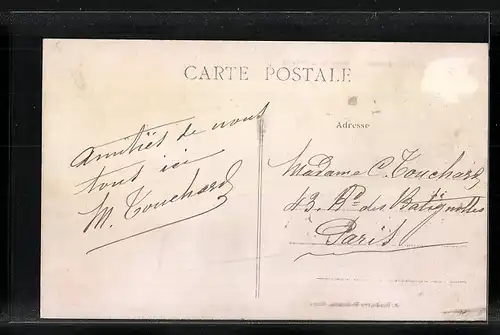 CARTE POSTALE
Amitiés de nous
tous ici
M. Touchard
Adresse
Madame C. Touchard
43. Bd des Batignolles
Paris